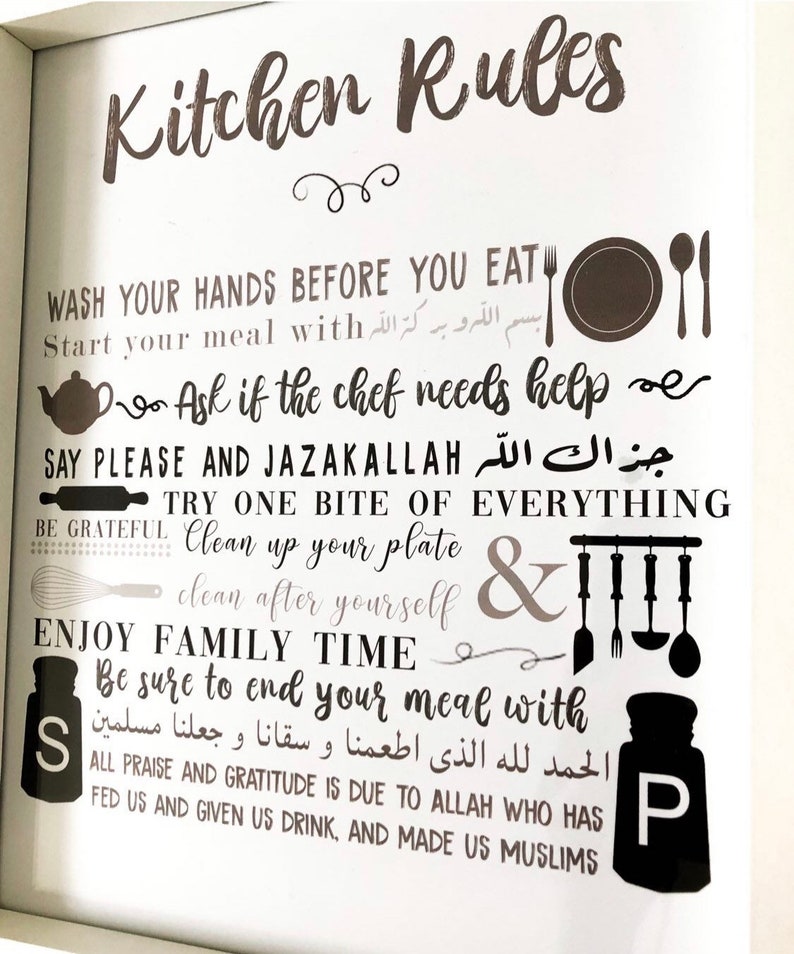 Kitchen Rules
WASH YOUR HANDS BEFORE YOU EAT
Start your meal with بسم اللّه و بركة اللّه
Ask if the chef needs help
SAY PLEASE AND JAZAKALLAH جزاك اللّه
TRY ONE BITE OF EVERYTHING
BE GRATEFUL Clean up your plate
&
clean after yourself
ENJOY FAMILY TIME
Be sure to end your meal with
الحمد لله الذى اطعمنا و سقانا و جعلنا مسلمين
ALL PRAISE AND GRATITUDE IS DUE TO ALLAH WHO HAS
FED US AND GIVEN US DRINK, AND MADE US MUSLIMS
S
P